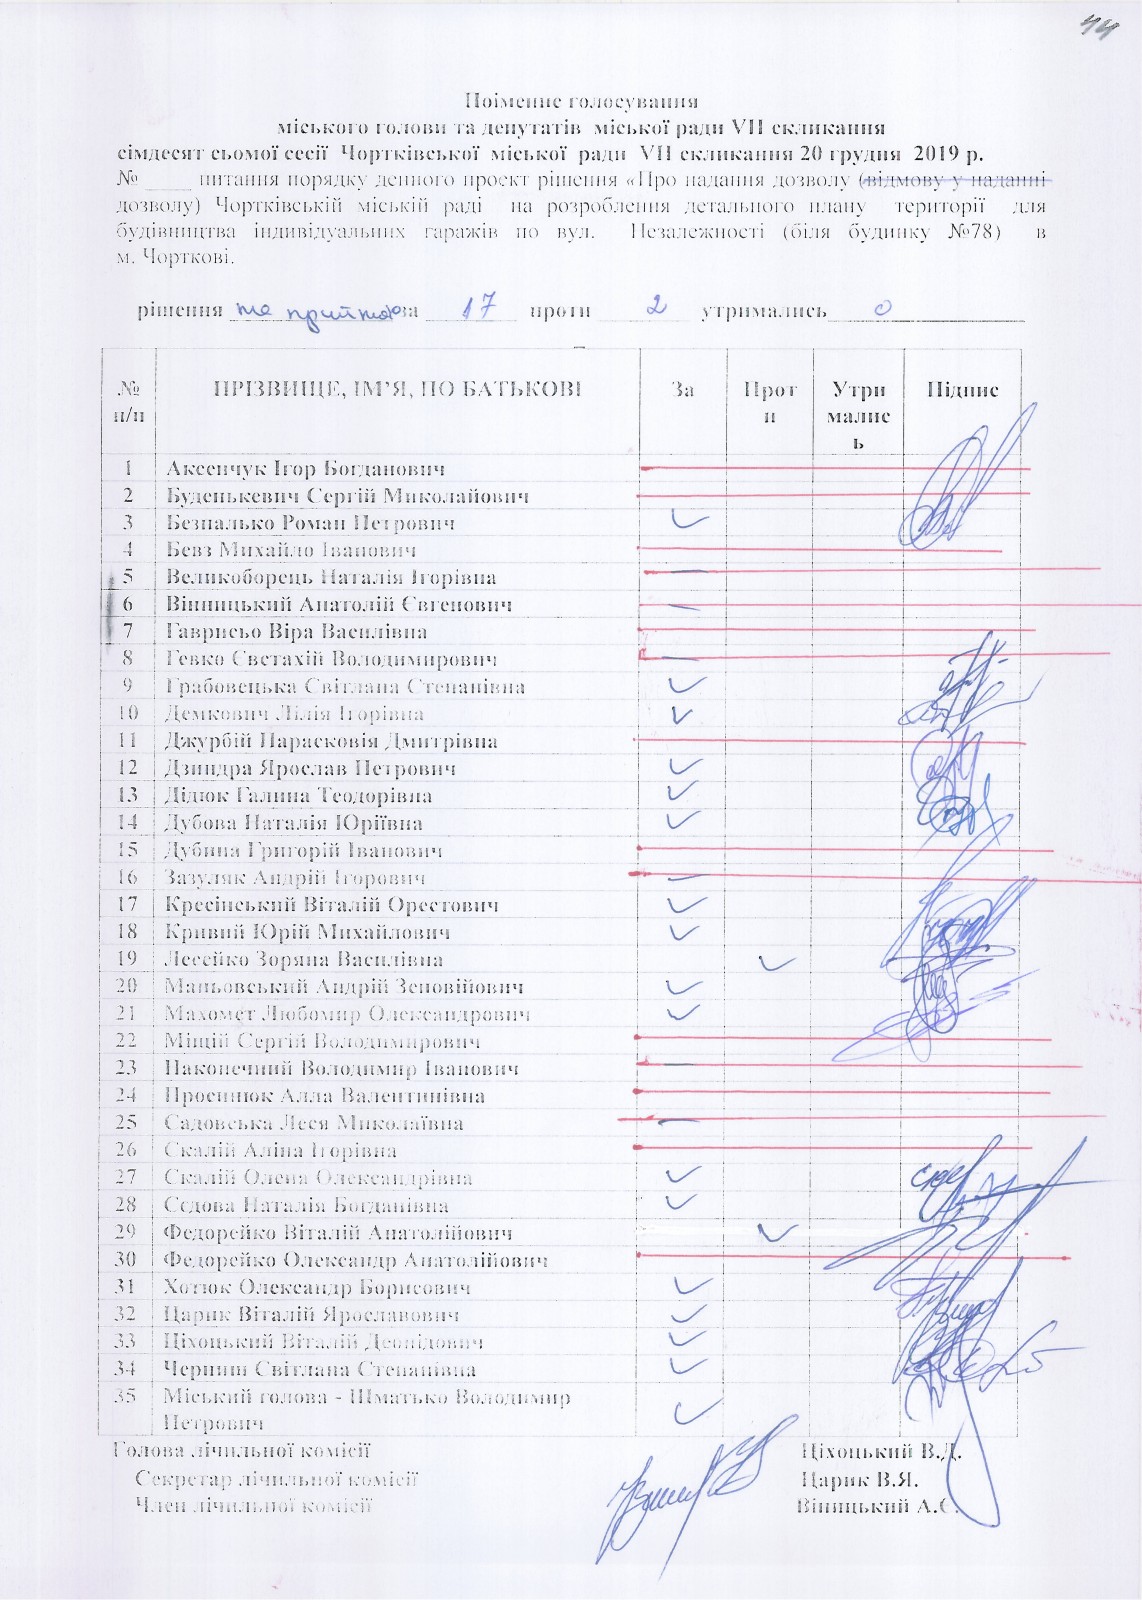 44
Поіменне голосування
міського голови та депутатів міської ради VII скликання
сімдесят сьомої сесії Чортківської міської ради VII скликання 20 грудня 2019 р.
№ ____ питання порядку денного проект рішення «Про надання дозволу (відмову у наданні
дозволу) Чортківській міській раді на розроблення детального плану території для
будівництва індивідуальних гаражів по вул. Незалежності (біля будинку №78) в
м. Чорткові.
рішення не прийнято за 17 проти 2 утримались 0
№ п/п ПРІЗВИЩЕ, ІМ’Я, ПО БАТЬКОВІ За Проти Утрималися Підпис
1 Аксенчук Ігор Богданович
2 Буденькевич Сергій Миколайович
3 Безпалько Роман Петрович
4 Бевз Михайло Іванович
5 Великоборець Наталія Ігорівна
6 Вінницький Анатолій Євгенович
7 Гаврисьо Віра Василівна
8 Гевко Євстахій Володимирович
9 Грабовецька Світлана Степанівна
10 Демкович Лілія Ігорівна
11 Джурбій Парасковія Дмитрівна
12 Дзиндра Ярослав Петрович
13 Дідюк Галина Теодорівна
14 Дубова Наталія Юріївна
15 Дубина Григорій Іванович
16 Зазуляк Андрій Ігорович
17 Кресінський Віталій Орестович
18 Кривий Юрій Михайлович
19 Лесейко Зоряна Василівна
20 Маньовський Андрій Зеновійович
21 Махомет Любомир Олександрович
22 Міщій Сергій Володимирович
23 Наконечний Володимир Іванович
24 Просинюк Алла Валентинівна
25 Садовська Леся Миколаївна
26 Скалій Аліна Ігорівна
27 Скалій Олена Олександрівна
28 Сєдова Наталія Богданівна
29 Федорейко Віталій Анатолійович
30 Федорейко Олександр Анатолійович
31 Хотюк Олександр Борисович
32 Царик Віталій Ярославович
33 Ціхоцький Віталій Деонідович
34 Чернин Світлана Степанівна
35 Міський голова - Шматько Володимир
Петрович
Голова лічильної комісії Ціхоцький В.Д.
Секретар лічильної комісії Царик В.Я.
Член лічильної комісії Віницький А.Є.